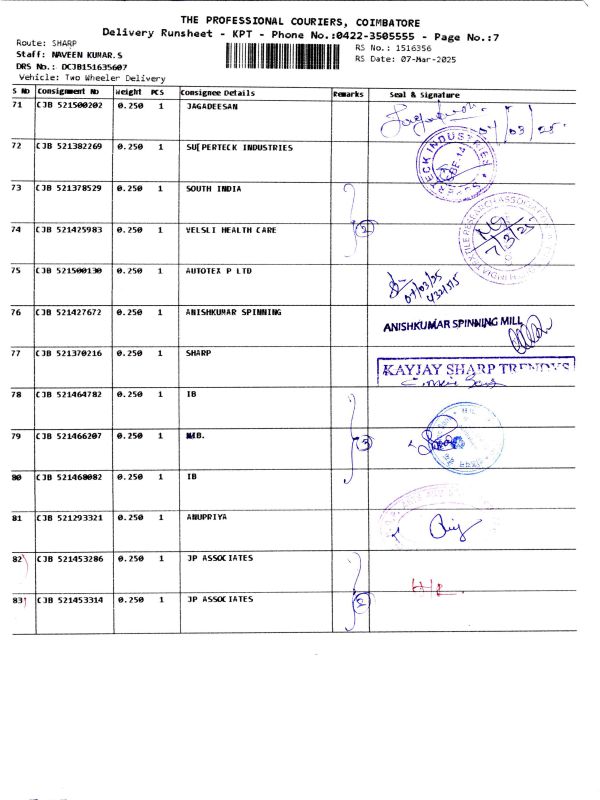 THE PROFESSIONAL COURIERS, COIMBATORE
Delivery Runsheet - KPT - Phone No.:0422-3505555 - Page No.:7
Route: SHARP
Staff: NAVEEN KUMAR.S
DRS No.: DCJB151635607
Vehicle: Two Wheeler Delivery
RS No.: 1516356
RS Date: 07-Mar-2025
S No Consignment No Weight PCS Consignee Details Remarks Seal & Signature
71 CJB 521500202 0.250 1 JAGADEESAN
03 25
72 CJB 521382269 0.250 1 SU[PERTECK INDUSTRIES
73 CJB 521378529 0.250 1 SOUTH INDIA
74 CJB 521425983 0.250 1 VELSLI HEALTH CARE
2
7/3/25
75 CJB 521500130 0.250 1 AUTOTEX P LTD
07/03/25
76 CJB 521427672 0.250 1 ANISHKUMAR SPINNING
ANISHKUMAR SPINNING MILL
77 CJB 521370216 0.250 1 SHARP
KAYJAY SHARP TRENDYS
78 CJB 521464782 0.250 1 IB
79 CJB 521466207 0.250 1
3
80 CJB 521468082 0.250 1 IB
81 CJB 521293321 0.250 1 ANUPRIYA
82 CJB 521453286 0.250 1 JP ASSOCIATES
83 CJB 521453314 0.250 1 JP ASSOCIATES
2